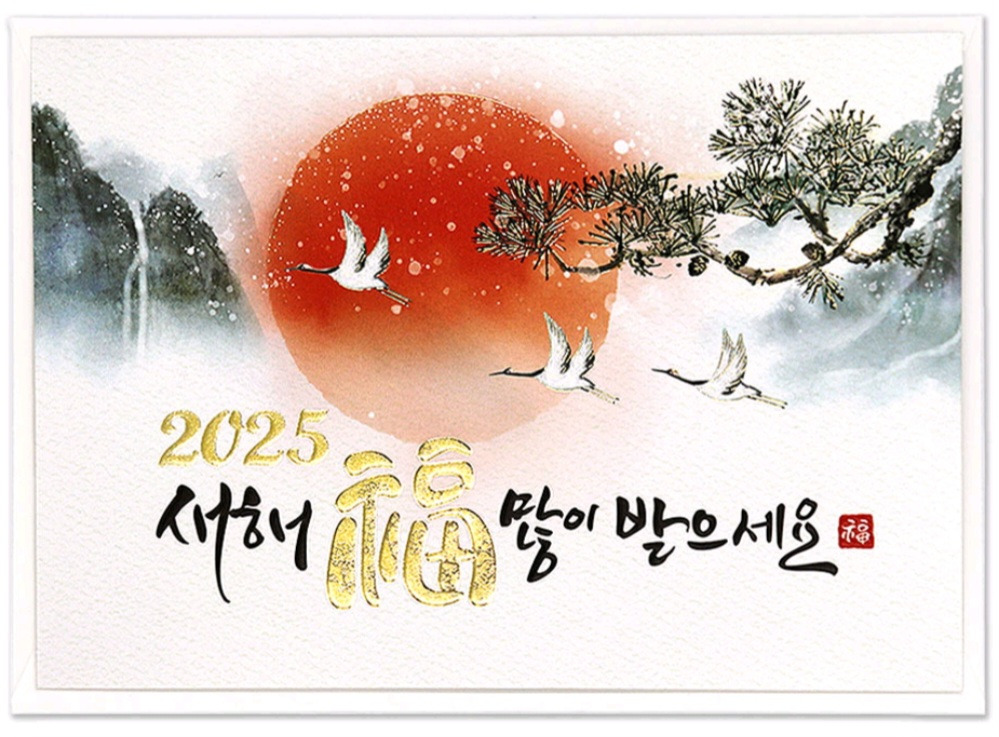 2025
새해 福 많이 받으세요 福